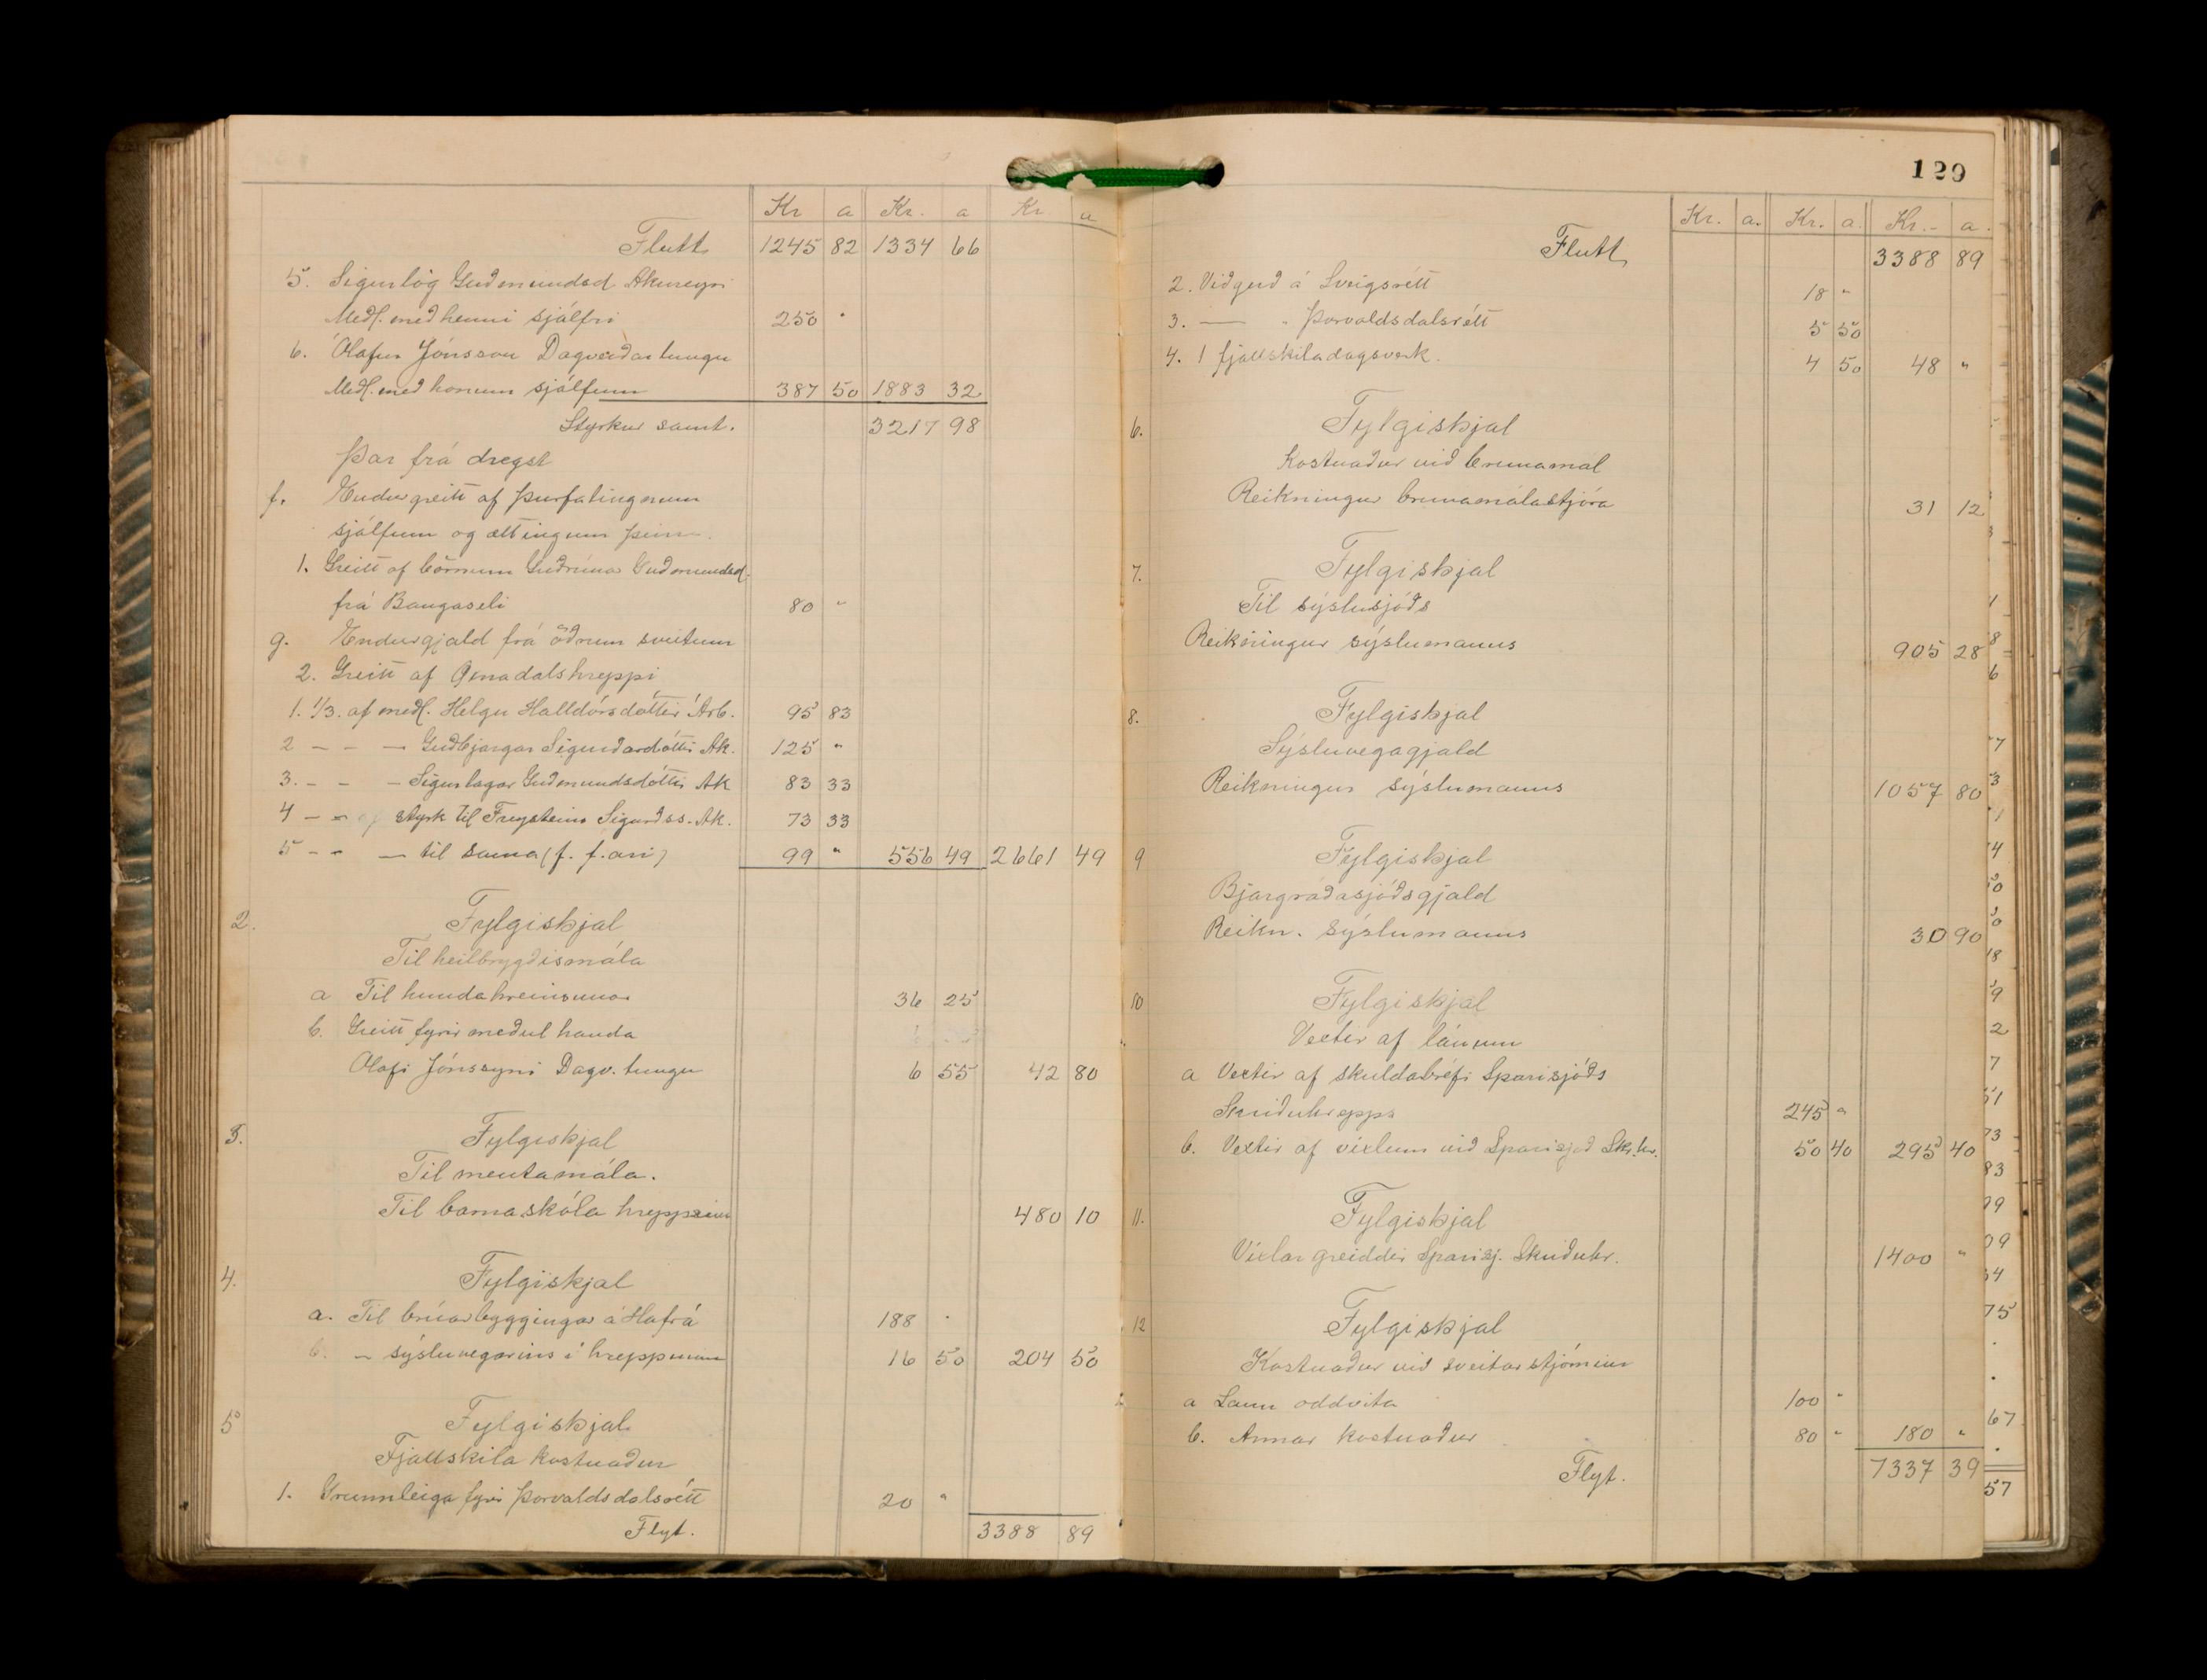 Kr a Kr. a Kr a
Flutt 1245 82 1334 66
5. Sigurlög Guðmundsd. Akureyri
Meðl. með henni sjálfri 250 "
6. Ólafur Jónsson Dagverðartungu
Meðl. með honum sjálfum 387 50 1883 32
Styrkur samt. 3217 98
Þar frá dregst
f. Endurgreitt af þurfalingnum
sjálfum og ættingum þeim
1. Greitt af börnum Guðrúnar Guðmundsd.
frá Baugaseli 80 "
g. Endurgjald frá öðrum sveitum
2. Greitt af Öxnadalshreppi
1. 1/3. af meðl. Helgu Halldórsdóttir Árb. 95 83
2 - - — Guðbjargar Sigurðardóttir Ak. 125 "
3. - - - Sigurlagar Guðmundsdóttir Ak 83 33
4 - - af styrk til Freysteins Sigurðss. Ak. 73 33
5 - - — til sama (f. f. ári) 99 " 556 49 2661 49
2. Fylgiskjal
Til heilbrygðismála
a Til hundahreinsunar 36 25
b. Greitt fyrir meðul handa
Olafi Jónssyni Dagv. tungu 6 55 42 80
3. Fylgiskjal
Til mentamála.
Til barnaskóla hreppsins 480 10
4. Fylgiskjal
a. Til brúarbyggingar á Hafrá 188 "
b. - sýsluvegarins í hreppnum 16 50 204 50
5 Fylgiskjal
Fjallskila kostnaður
1. Grunnleiga fyrir Þorvaldsdalsrétt 20 "
Flyt. 3388 89
129
Kr. a. Kr. a. Kr. - a.
Flutt 3388 89
2. Viðgerð á Sveigsrétt 18 "
3. — " Þorvaldsdalsrétt 5 50
4. 1 fjallskiladagsverk. 4 50 48 "
6. Fylgiskjal
Kostnaður við brunamál
Reikningur brunamálastjóra 31 12
7. Fylgiskjal
Til sýslusjóðs
Reikningur sýslumanns 905 28
8. Fylgiskjal
Sýsluvegagjald
Reikningur sýslumanns 1057 80
9 Fylgiskjal
Bjargráðasjóðsgjald
Reikn. sýslumanns 30 90
10 Fylgiskjal
Vextir af lánum
a Vextir af skuldabréfi Sparisjóðs
Skriðuhrepps 245 "
b. Vextir af víxlum við Sparisjóð Skr.hr. 50 40 295 40
11. Fylgiskjal
Víxlar greiddir Sparisj. Skriðuhr. 1400 "
12 Fylgiskjal
Kostnaður við sveitarstjórnina
a Laun oddvita 100 "
b. Annar kostnaður 80 " 180 "
Flyt. 7337 39